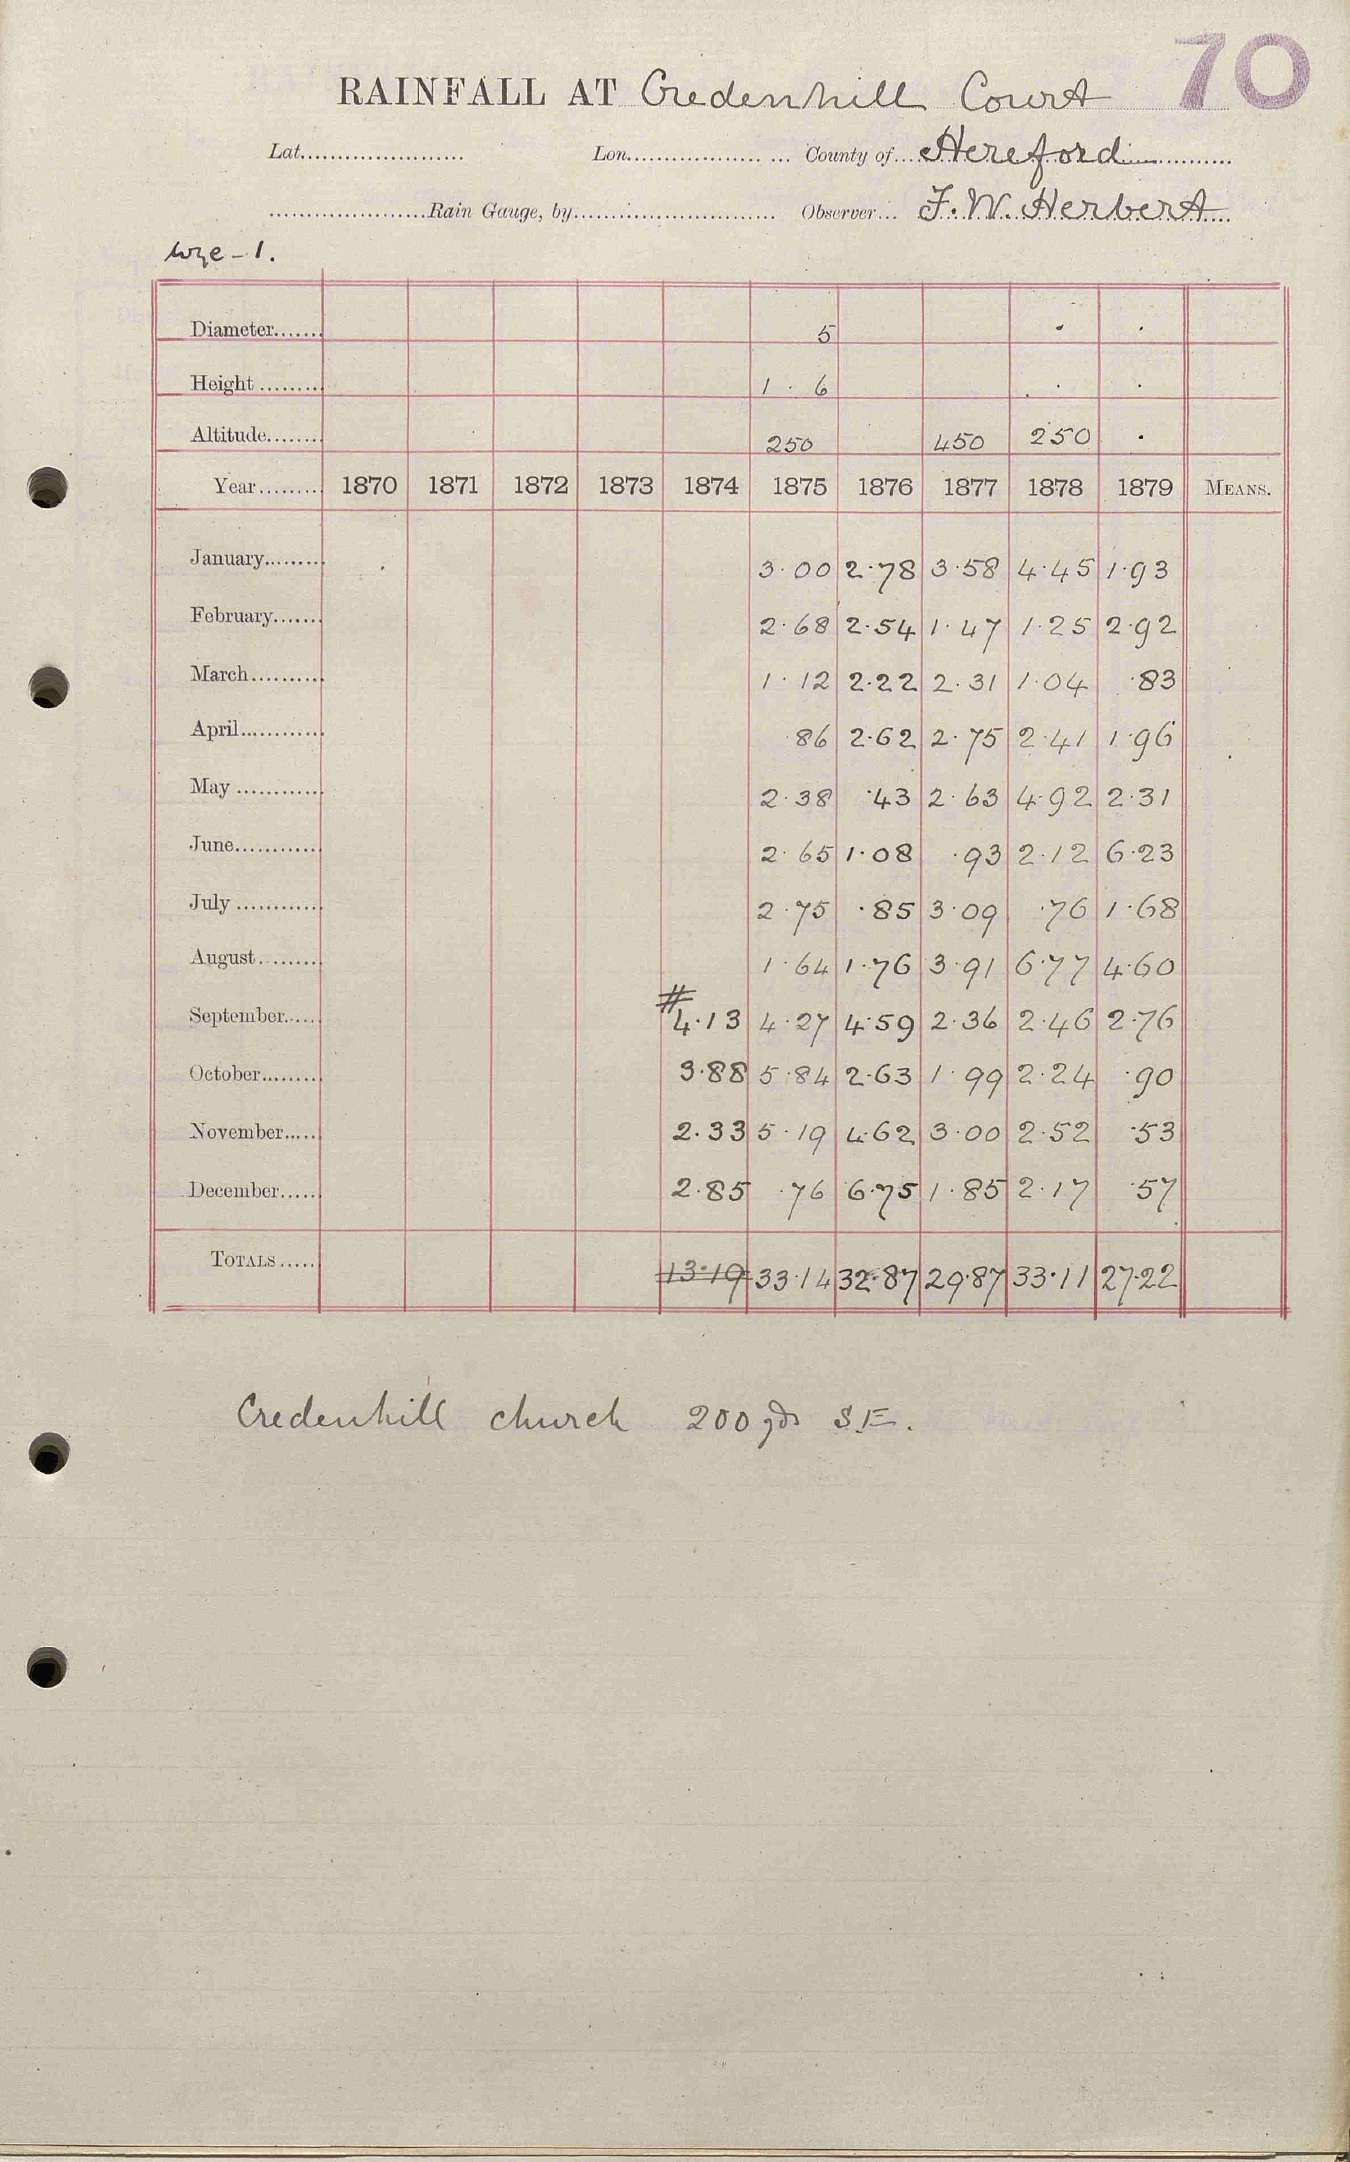 70
RAINFALL AT Credenhill Court
Lat. Lon. County of Hereford
Rain Gauge, by Observer F. W. Herbert
Wye - 1.
Diameter 5
Height 1 · 6
Altitude 250 450 250
Year 1870 1871 1872 1873 1874 1875 1876 1877 1878 1879 MEANS.
January 3·00 2·78 3·58 4·45 1·93
February 2·68 2·54 1·47 1·25 2·92
March 1·12 2·22 2·31 1·04 ·83
April ·86 2·62 2·75 2·41 1·96
May 2·38 ·43 2·63 4·92 2·31
June 2·65 1·08 ·93 2·12 6·23
July 2·75 ·85 3·09 ·76 1·68
August 1·64 1·76 3·91 6·77 4·60
September # 4·13 4·27 4·59 2·36 2·46 2·76
October 3·88 5·84 2·63 1·99 2·24 ·90
November 2·33 5·19 4·62 3·00 2·52 ·53
December 2·85 ·76 6·75 1·85 2·17 ·57
TOTALS 13·19 33·14 32·87 29·87 33·11 27·22
Credenhill church 200 yds S.E.